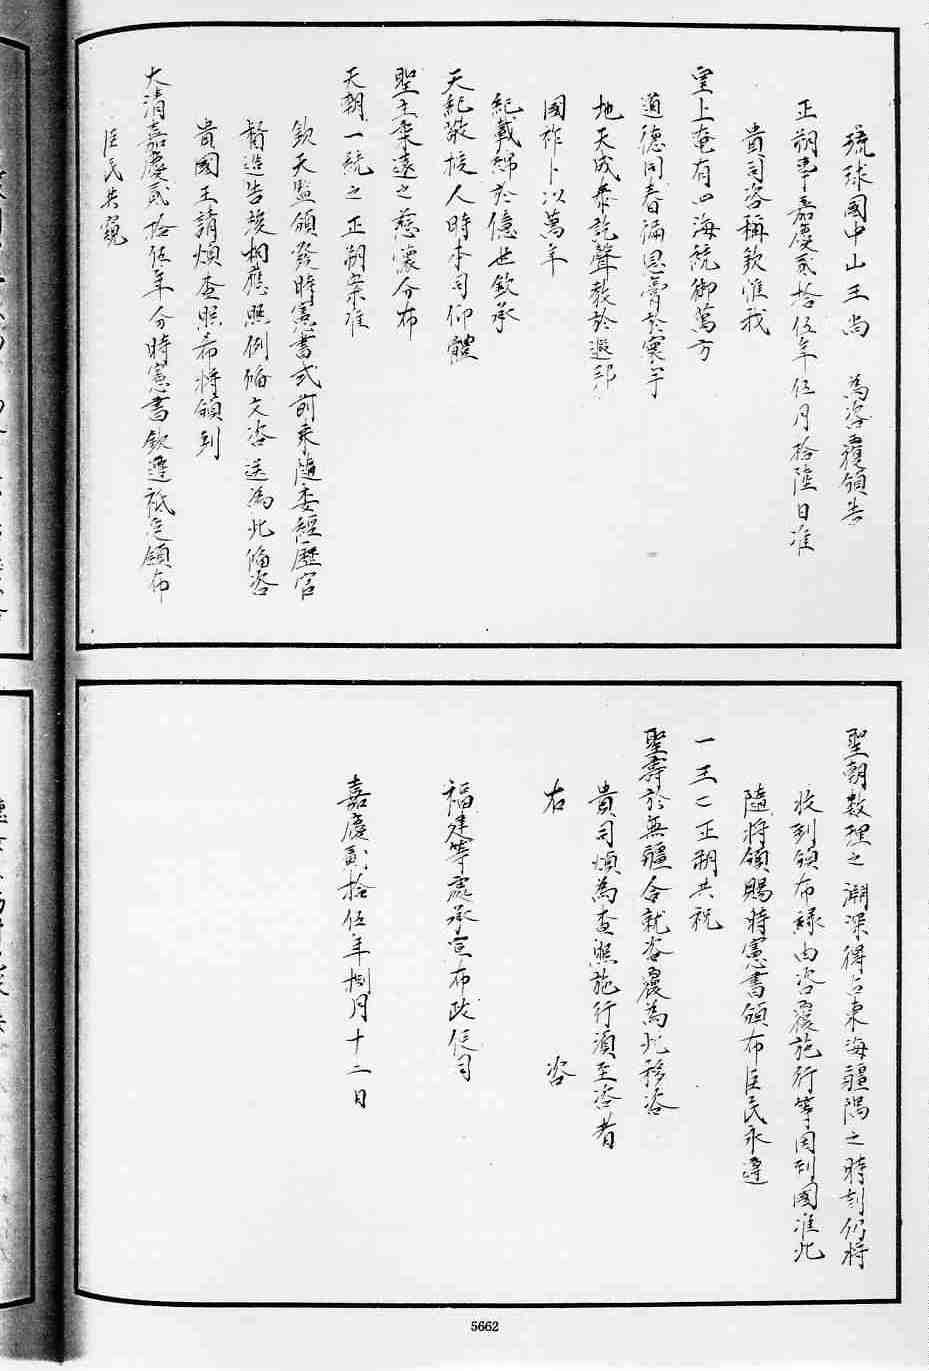 琉球國中山王尚　為咨覆頒告
正朔事嘉慶貳拾伍年伍月拾陸日准
貴司咨稱欽惟我
皇上奄有四海統御萬方
道德同春徧恩膏於寰宇
地天成泰訖聲教於遐邦
國祚卜以萬年
紀載綿於億世欽承
天紀敬授人時本司仰體
聖主柔遠之慈懷分布
天朝一統之正朔案准
欽天監頒發時憲書式前來隨委經歷官
督造告竣相應照例備文咨送為此備咨
貴國王請煩查照希將頒到
大清嘉慶貳拾伍年分時憲書欽遵祗迓頒布
臣民共窺
聖朝數理之淵深得占東海疆隅之時刻仍將
收到頒布緣由咨覆施行等因到國准此
隨將頒賜時憲書頒布臣民永遵
一王之正朔共祝
聖壽於無疆合就咨覆為此移咨
貴司煩為查照施行須至咨者
右　咨
福建等處承宣布政使司
嘉慶貳拾伍年捌月十二日
5662